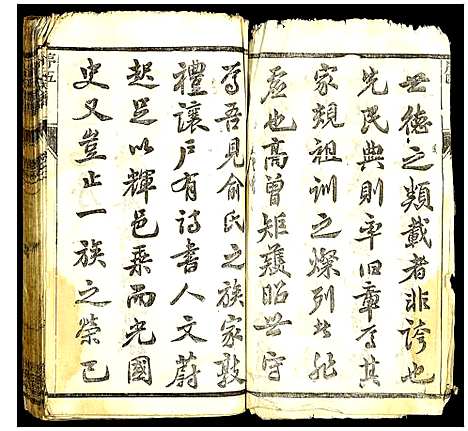 世德之類載者非誇也
先民典則率旧章爲其
家規祖訓之燦列皆非
虛也高曾矩矱昭世守
焉吾見俞氏之族家敦
禮讓戶有詩書人文蔚
起足以輝邑乘而光國
史又豈止一族之榮已
序五